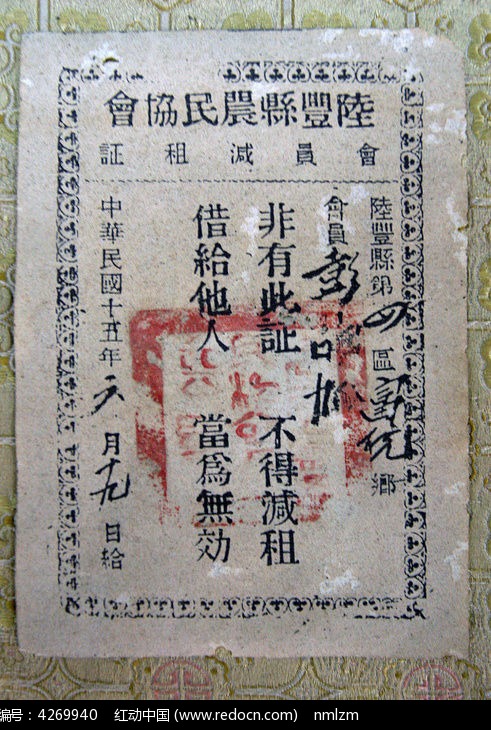 陸豐縣農民協會
會員減租証
陸豐縣第四區鄉
會員彭
非有此証 不得減租
借給他人 當爲無効
中華民國十五年六月十九日給
编号：4269940 红动中国 (www.redocn.com) nmlzm